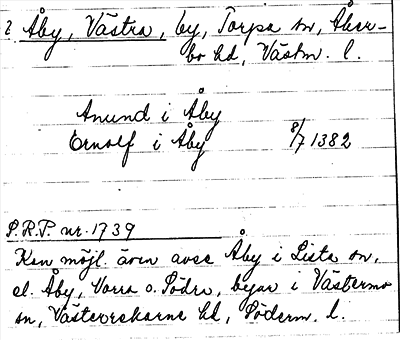 2 Åby, Västra, by, Torpa sn, Åker-
bo hd, Västm. l.
Anund i Åby
Ernolf i Åby 8/7 1382
S.R.P. nr. 1739
Kan möjl. även avse Åby i Lista sn,
el. Åby, Norra o. Södra, byar i Västermo
sn, Västerrekarne hd, Söderm. l.